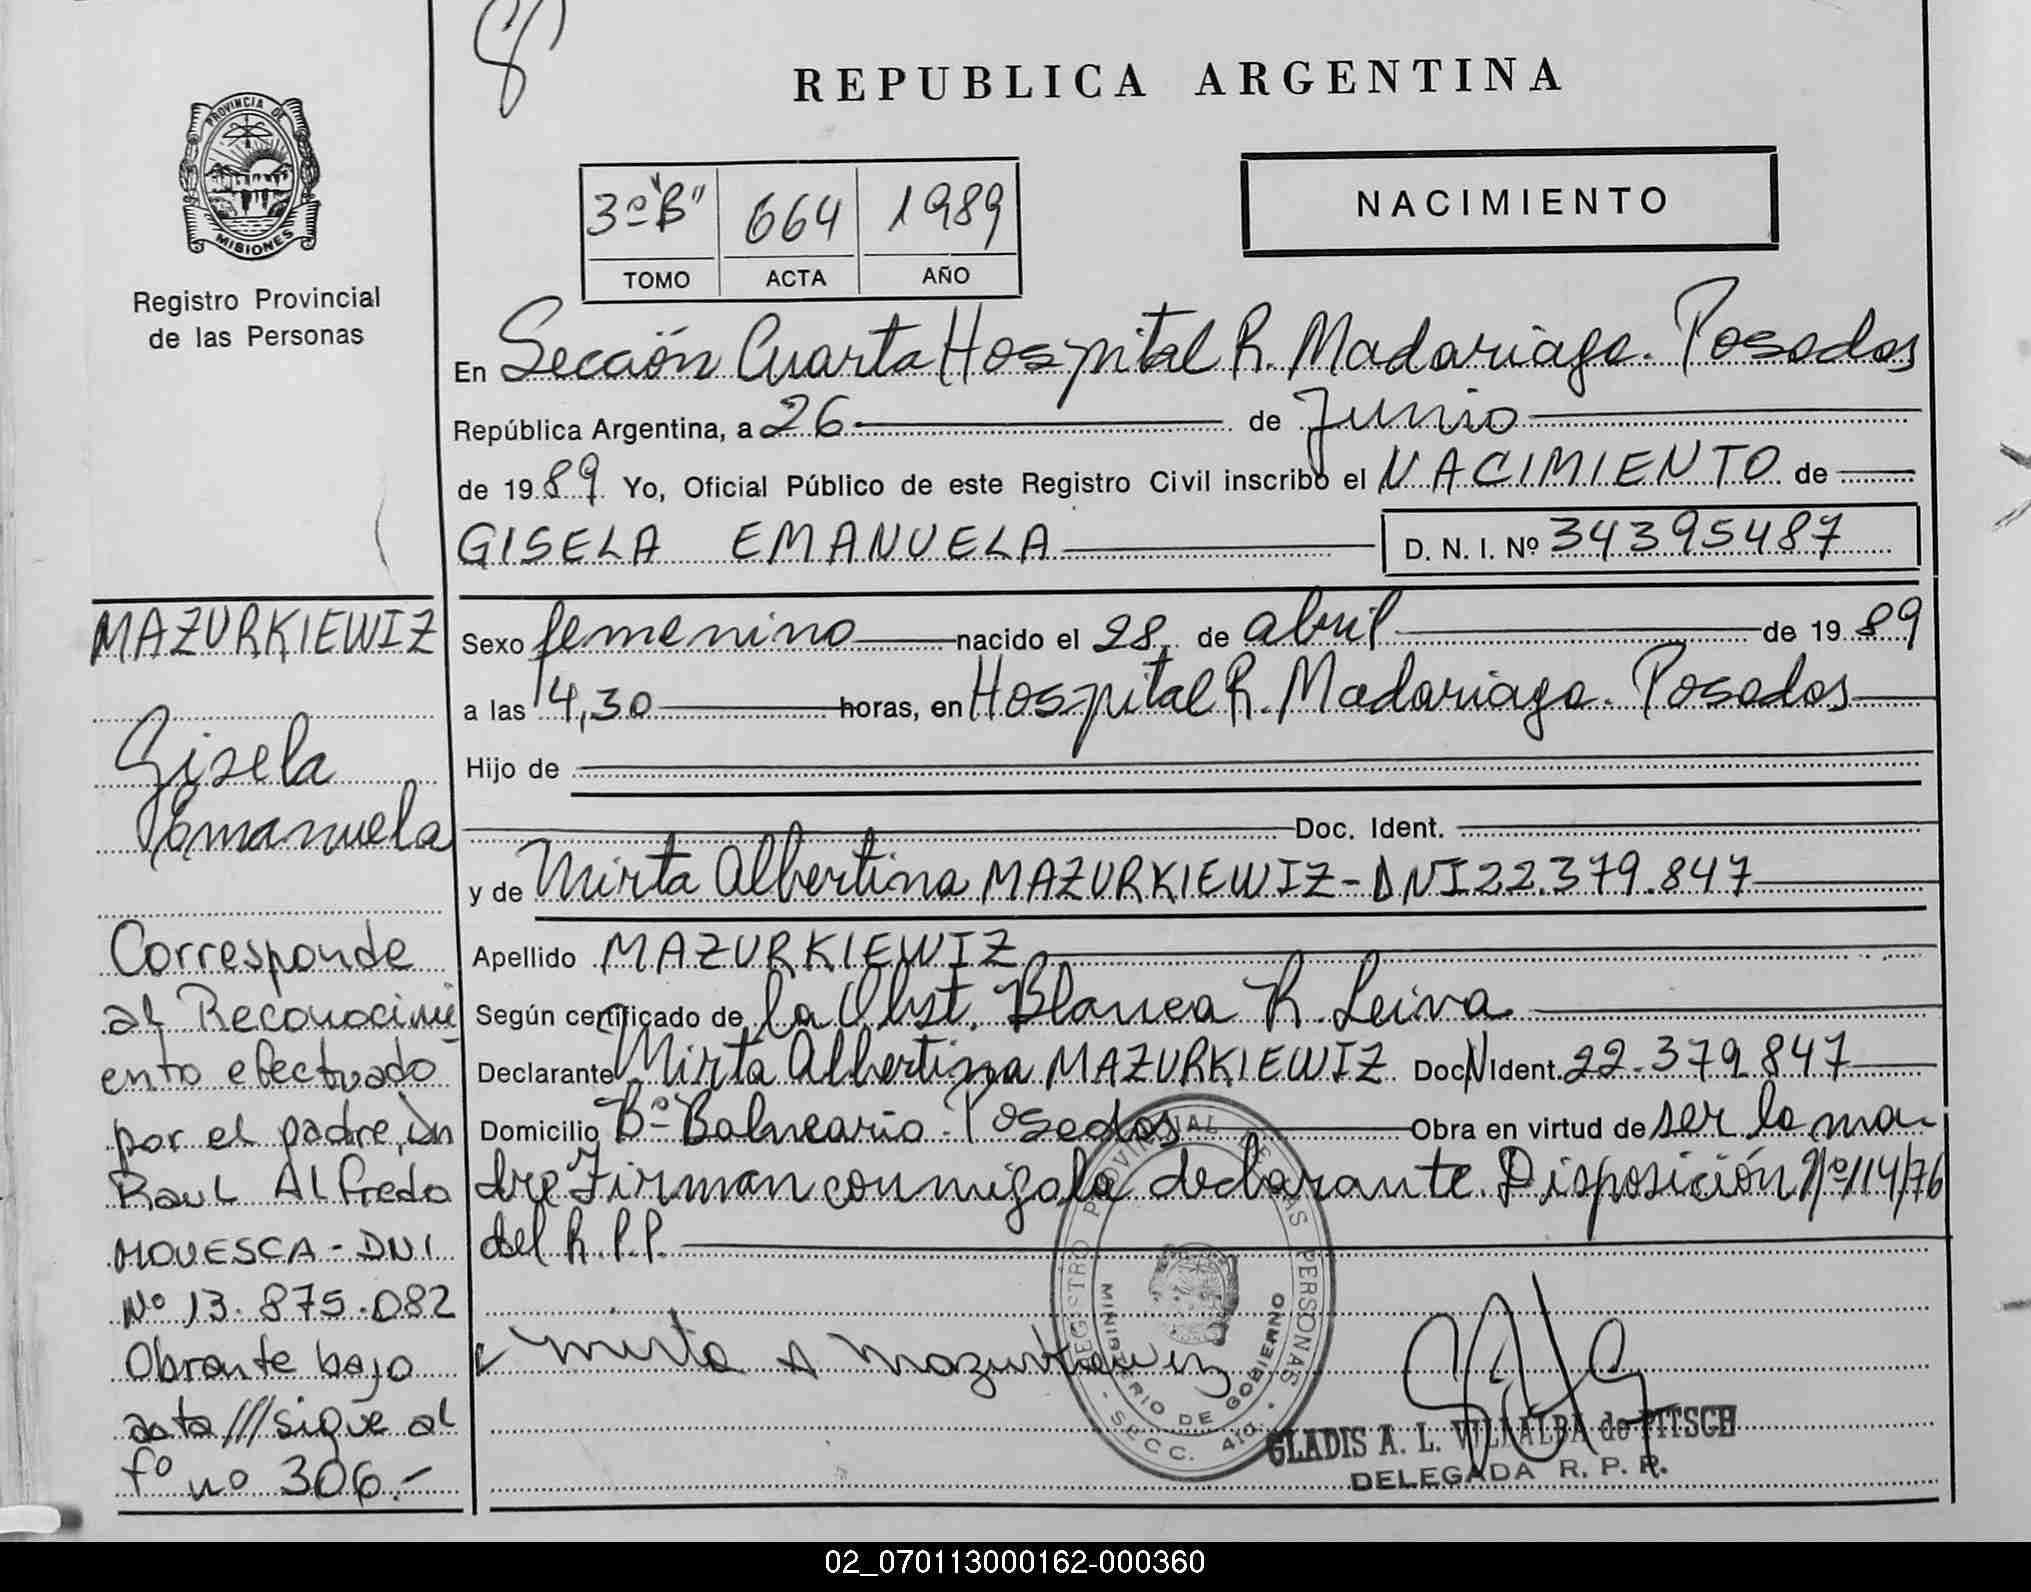 REPUBLICA ARGENTINA
PROVINCIA DE
MISIONES
Registro Provincial
de las Personas
3º "B" 664 1989
TOMO ACTA AÑO
NACIMIENTO
En Sección Cuarta Hospital R. Madariaga. Posadas
República Argentina, a 26 de Junio
de 1989 Yo, Oficial Público de este Registro Civil inscribo el NACIMIENTO de
GISELA EMANUELA D. N. I. Nº 34395487
Sexo femenino nacido el 28 de abril de 1989
a las 14,30 horas, en Hospital R. Madariaga. Posadas
Hijo de
Doc. Ident.
y de Mirta Albertina MAZURKIEWIZ - DNI 22.379.847
Apellido MAZURKIEWIZ
Según certificado de la Obst. Blanca R. Leiva
Declarante Mirta Albertina MAZURKIEWIZ Doc N Ident. 22.379.847
Domicilio Bº Balneario - Posadas Obra en virtud de ser la ma-
dre Firman conmigo la declarante. Disposición Nº 114/76
del R.P.P.
Mirta A Mazurkiewiz
REGISTRO PROVINCIAL DE LAS PERSONAS
MINISTERIO DE GOBIERNO
- SECC. 4ta. -
GLADIS A. L. VILLALBA de PITSCH
DELEGADA R. P. P.
MAZURKIEWIZ
Gisela
Emanuela
Corresponde
al Reconocimi
ento efectuado
por el padre, Dn
Raul Alfredo
MOVESCA - DNI
Nº 13.875.082
Obrante bajo
acta /// sigue al
fº nº 306.-
02_070113000162-000360